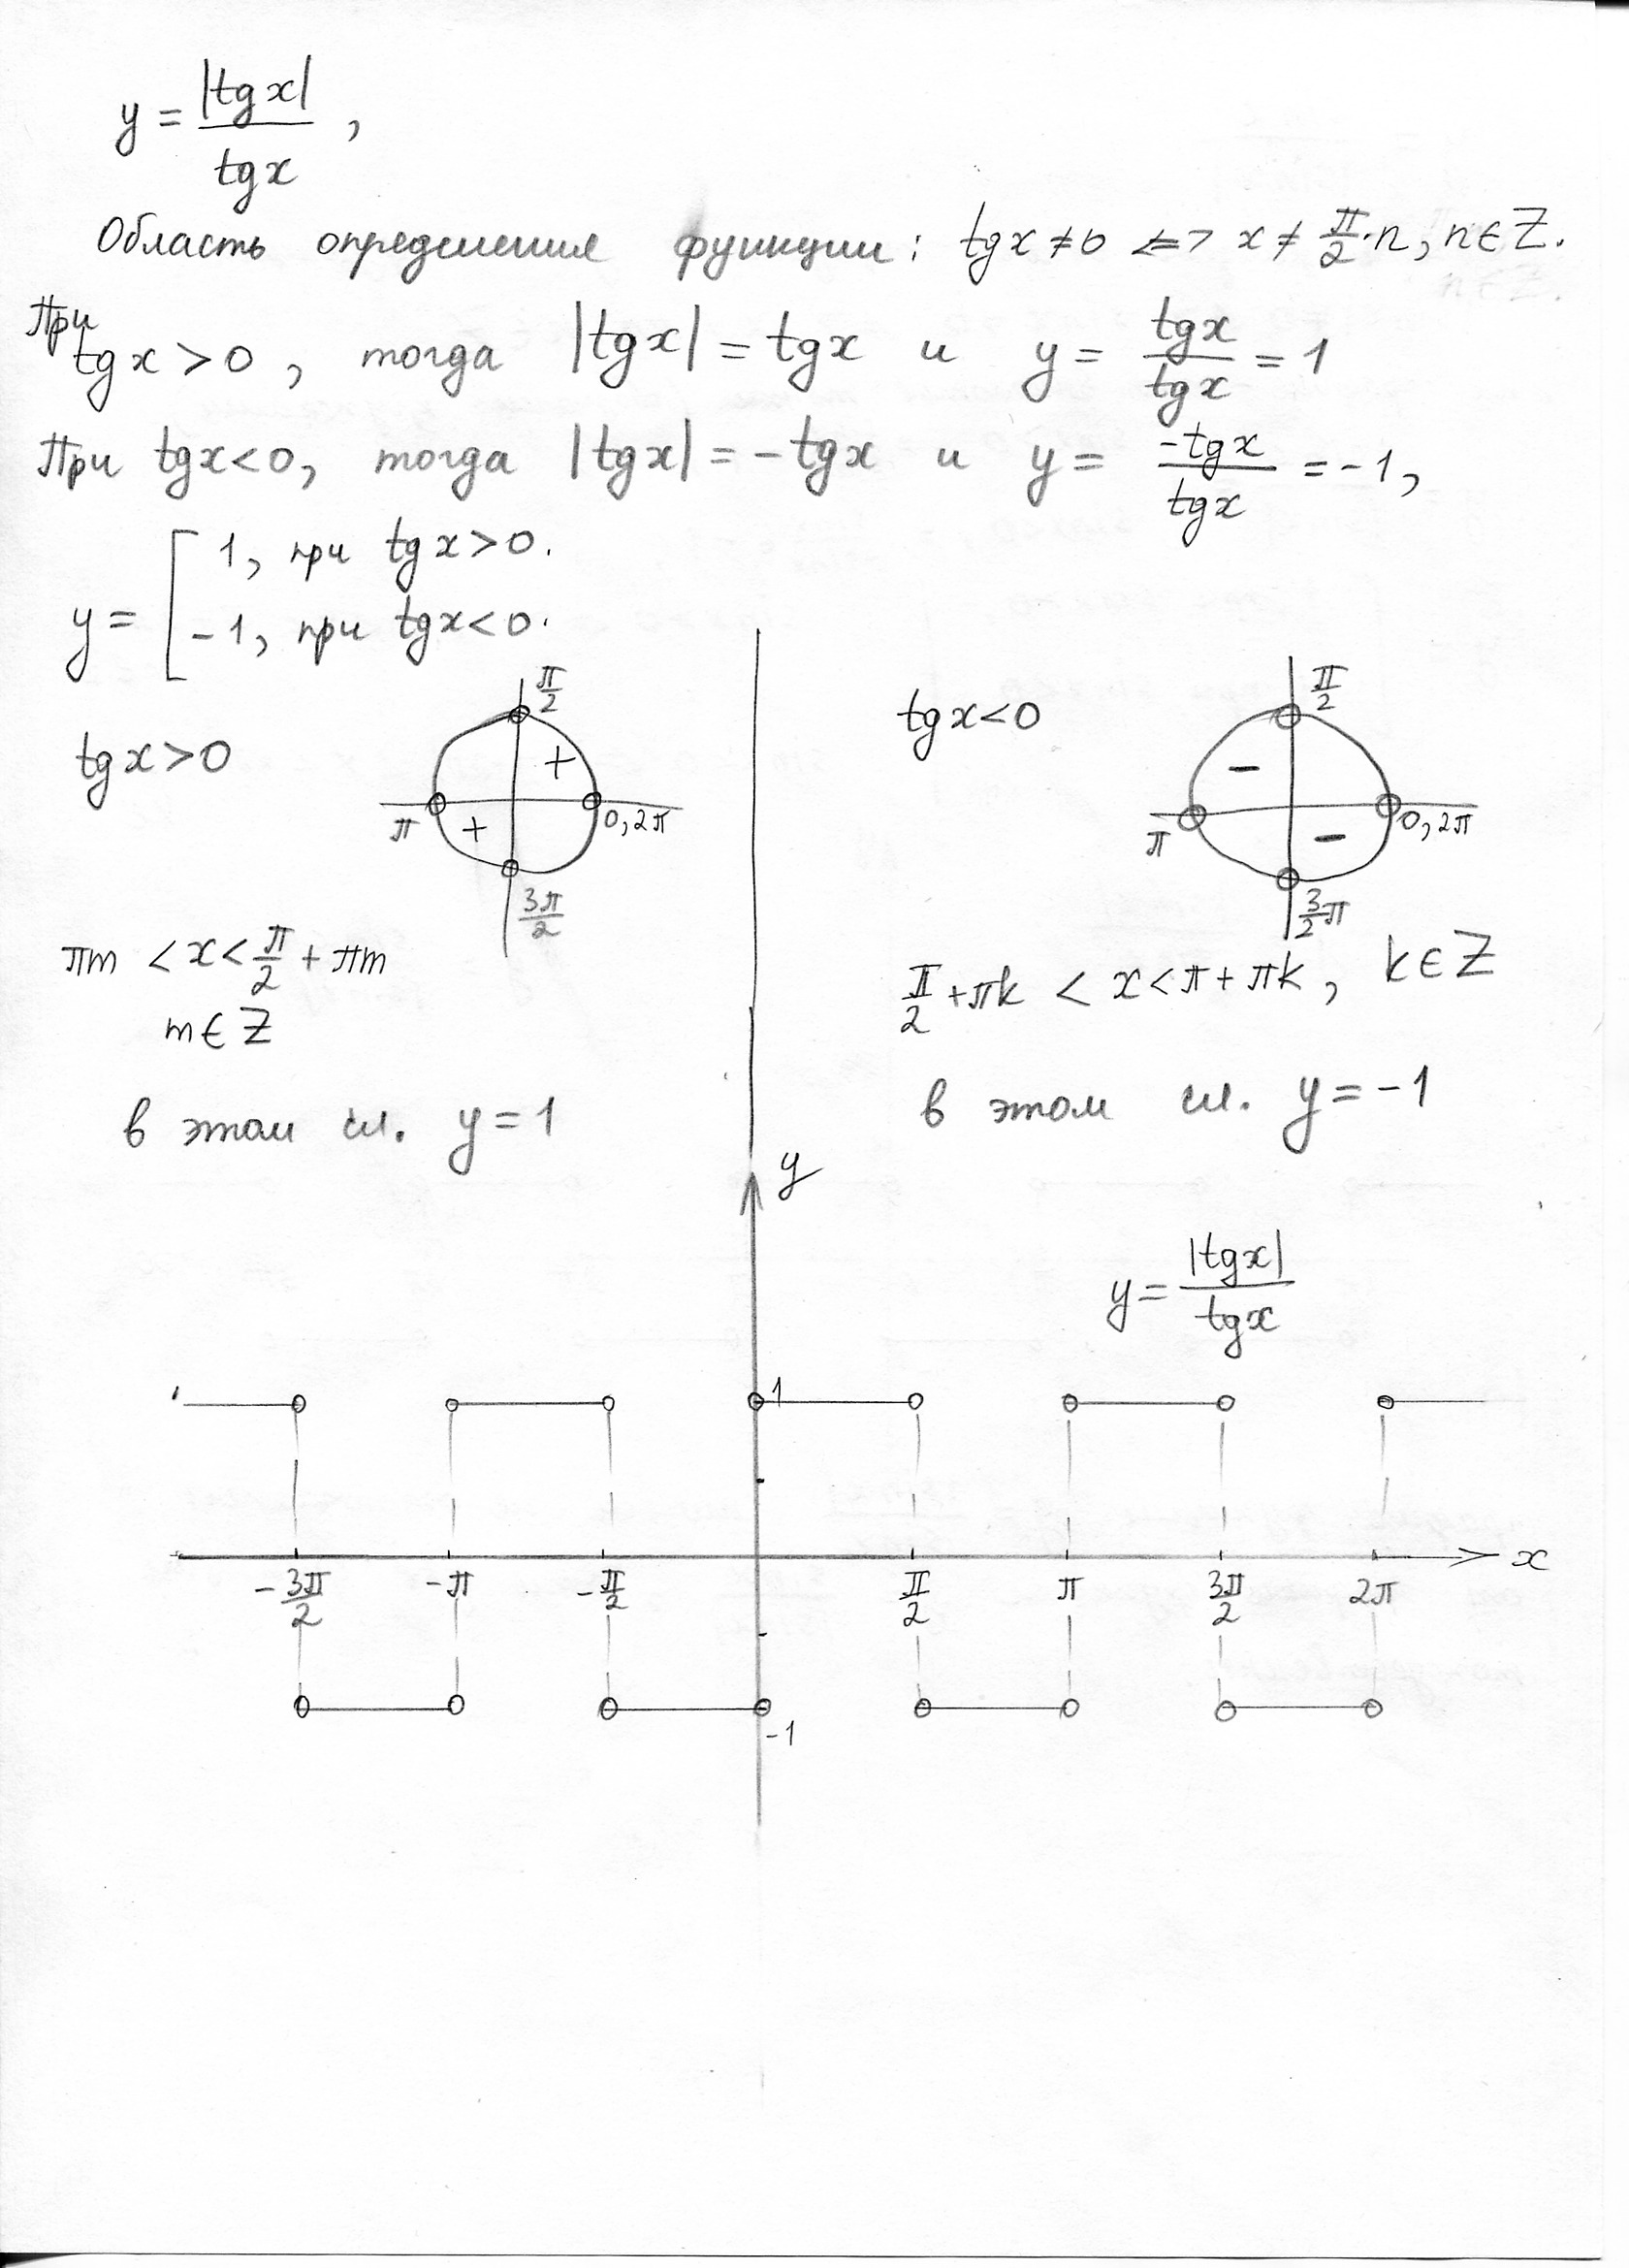 y = |tg x| / tg x ,
Область определения функции: tg x ≠ 0 <=> x ≠ π/2 · n, n ∈ Z.
При
tg x > 0 , тогда |tg x| = tg x и y = tg x / tg x = 1
При tg x < 0, тогда |tg x| = - tg x и y = -tg x / tg x = -1,
y = [ 1, при tg x > 0.
-1, при tg x < 0.
tg x > 0
π/2
+
+
π
0, 2π
3π/2
πm < x < π/2 + πm
m ∈ Z
в этом сл. y = 1
tg x < 0
π/2
-
-
π
0, 2π
3/2 π
π/2 + πk < x < π + πk, k ∈ Z
в этом сл. y = -1
y
y = |tg x| / tg x
1
-3π/2 -π -π/2 π/2 π 3π/2 2π x
-1